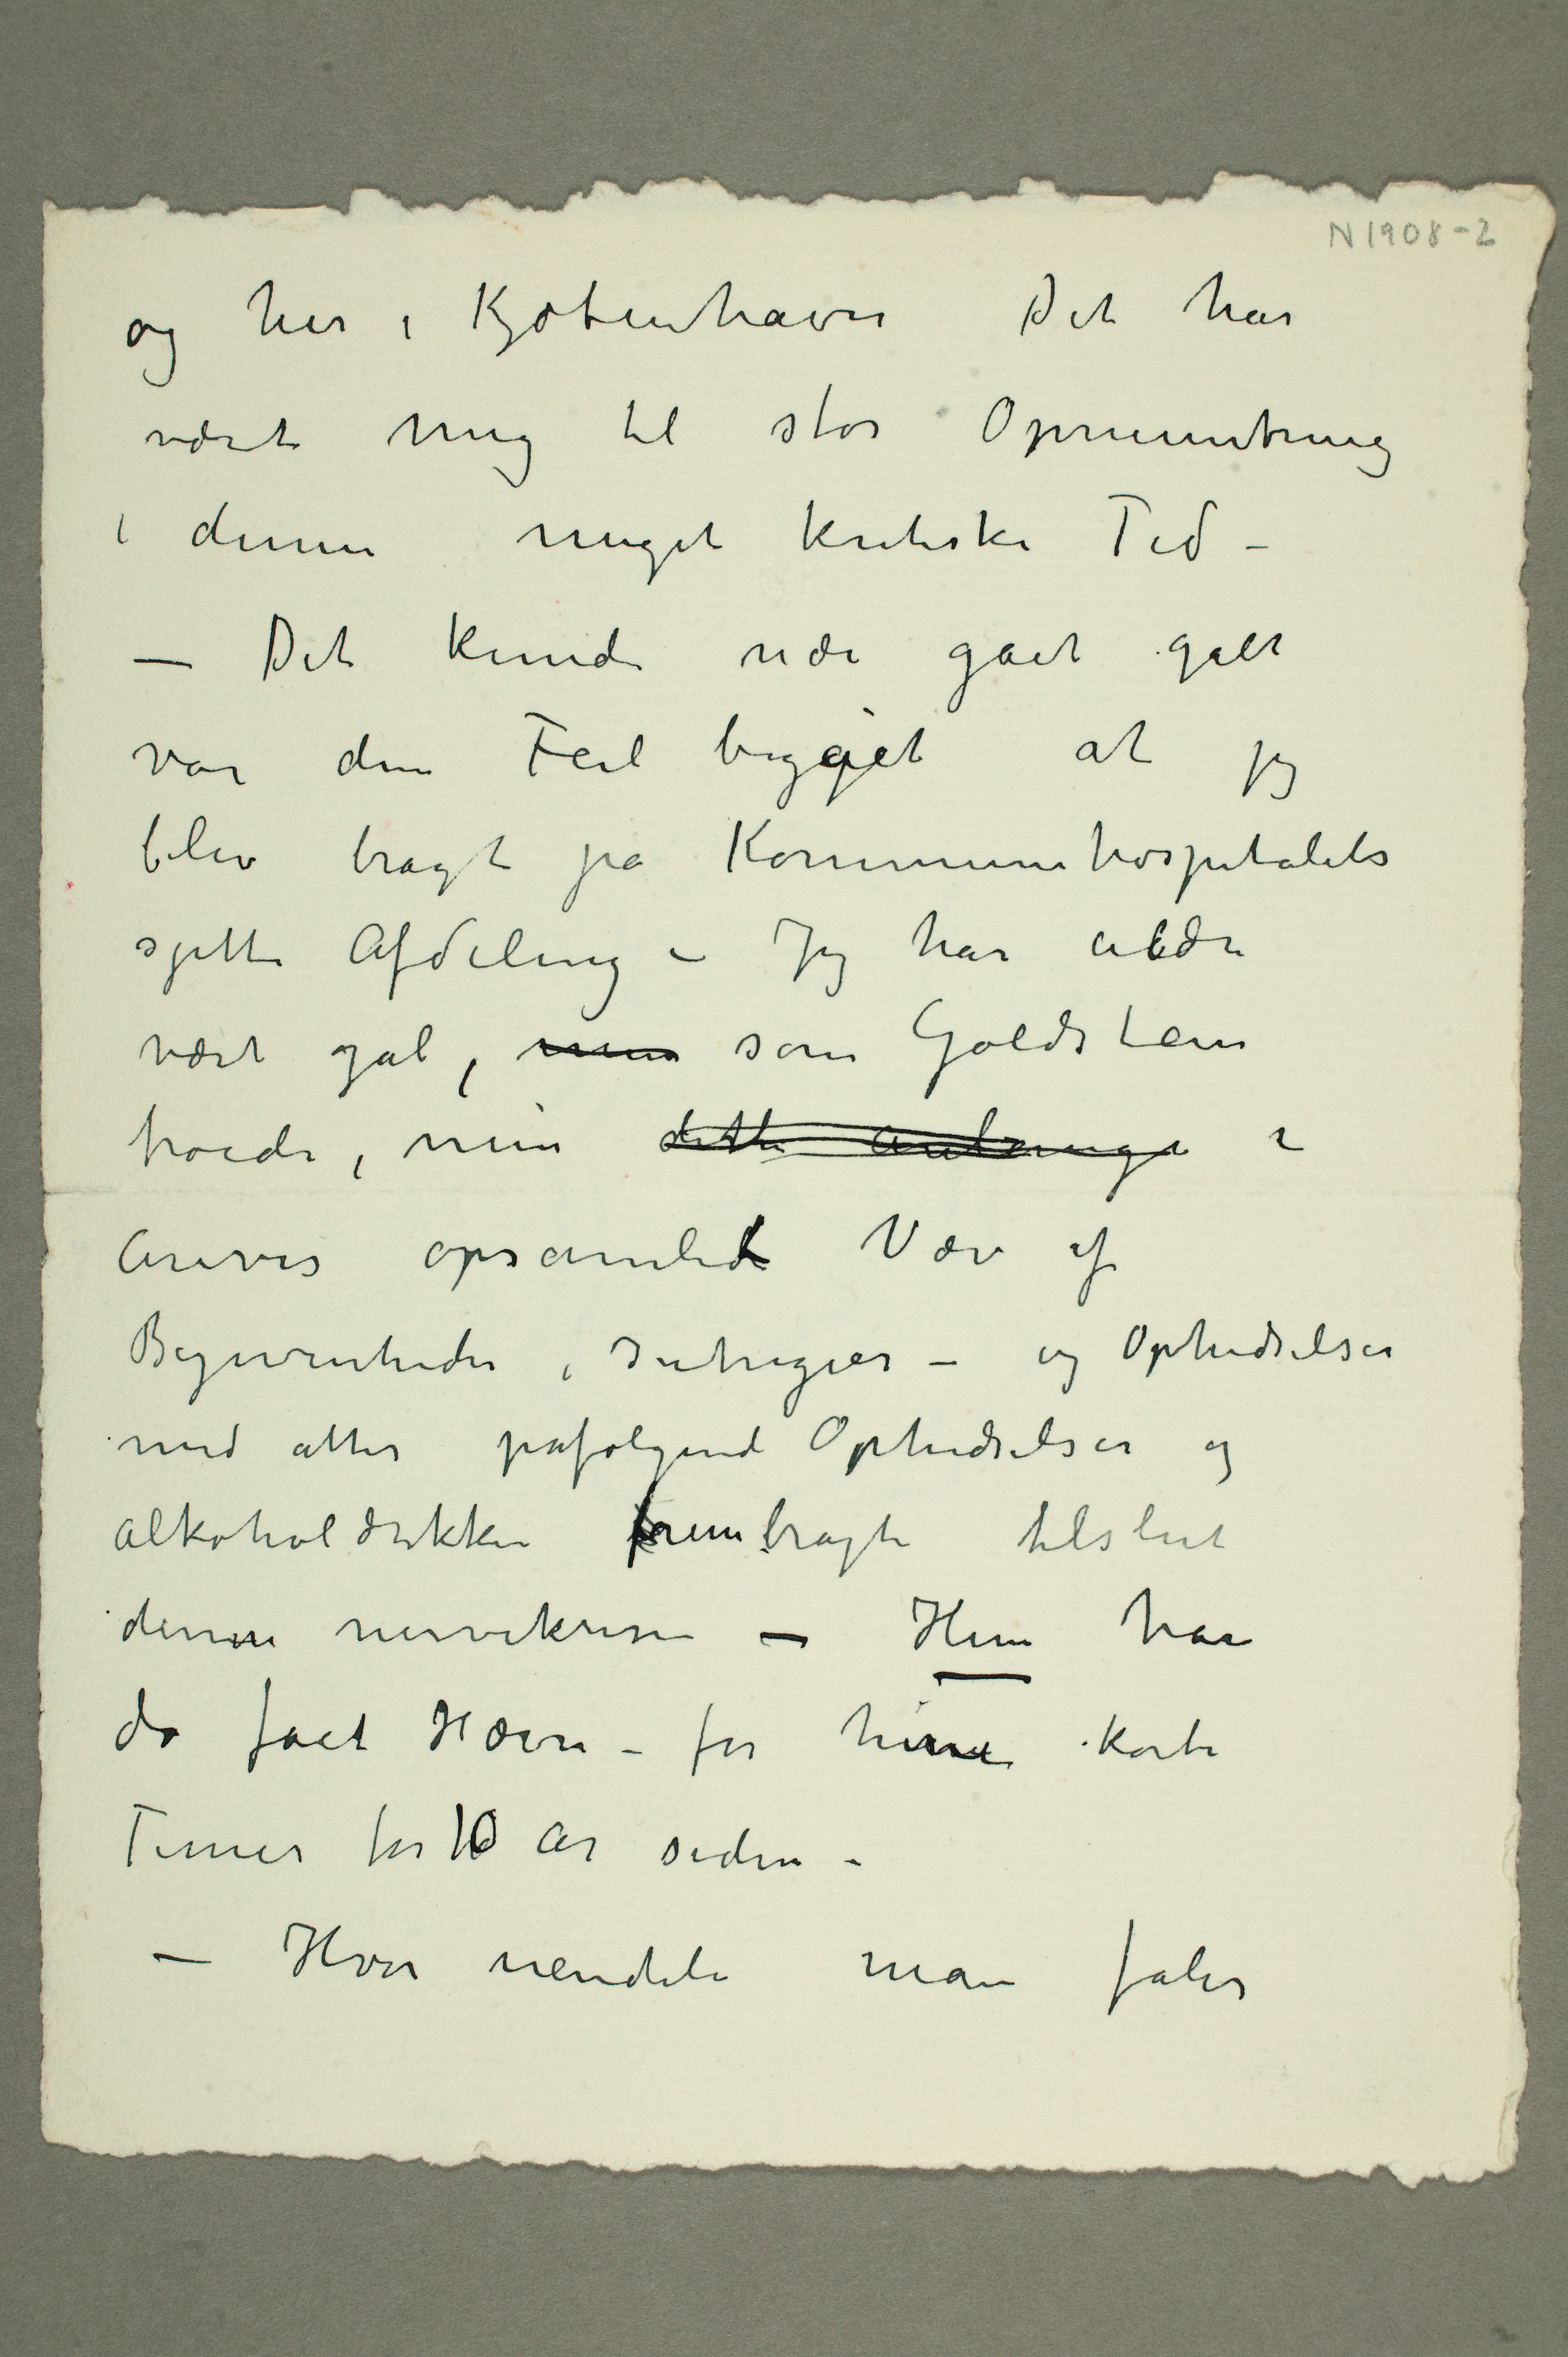 N 1908-2
og her i Kjøbenhavn Det har
vært mig til stor Opmuntring
i denne meget kritiske Tid –
– Det kunde nær gåt galt
var den Feil begået at jeg
blev bragt på Kommunehospitalets
sjette Afdeling – Jeg har aldri
vært gal, men som Goldstein
troede, men dette
Årevis opsamlet Væv af
Begivenheder, Intriger – og Ophidselser
med atter påfølgende Ophidselser og
alkoholdrikken frembragte tilslut
denne nervekrise – Hun har
da fået Hævn – for hine korte
Timer for 10 år siden –
– Hvor uendeli man føler